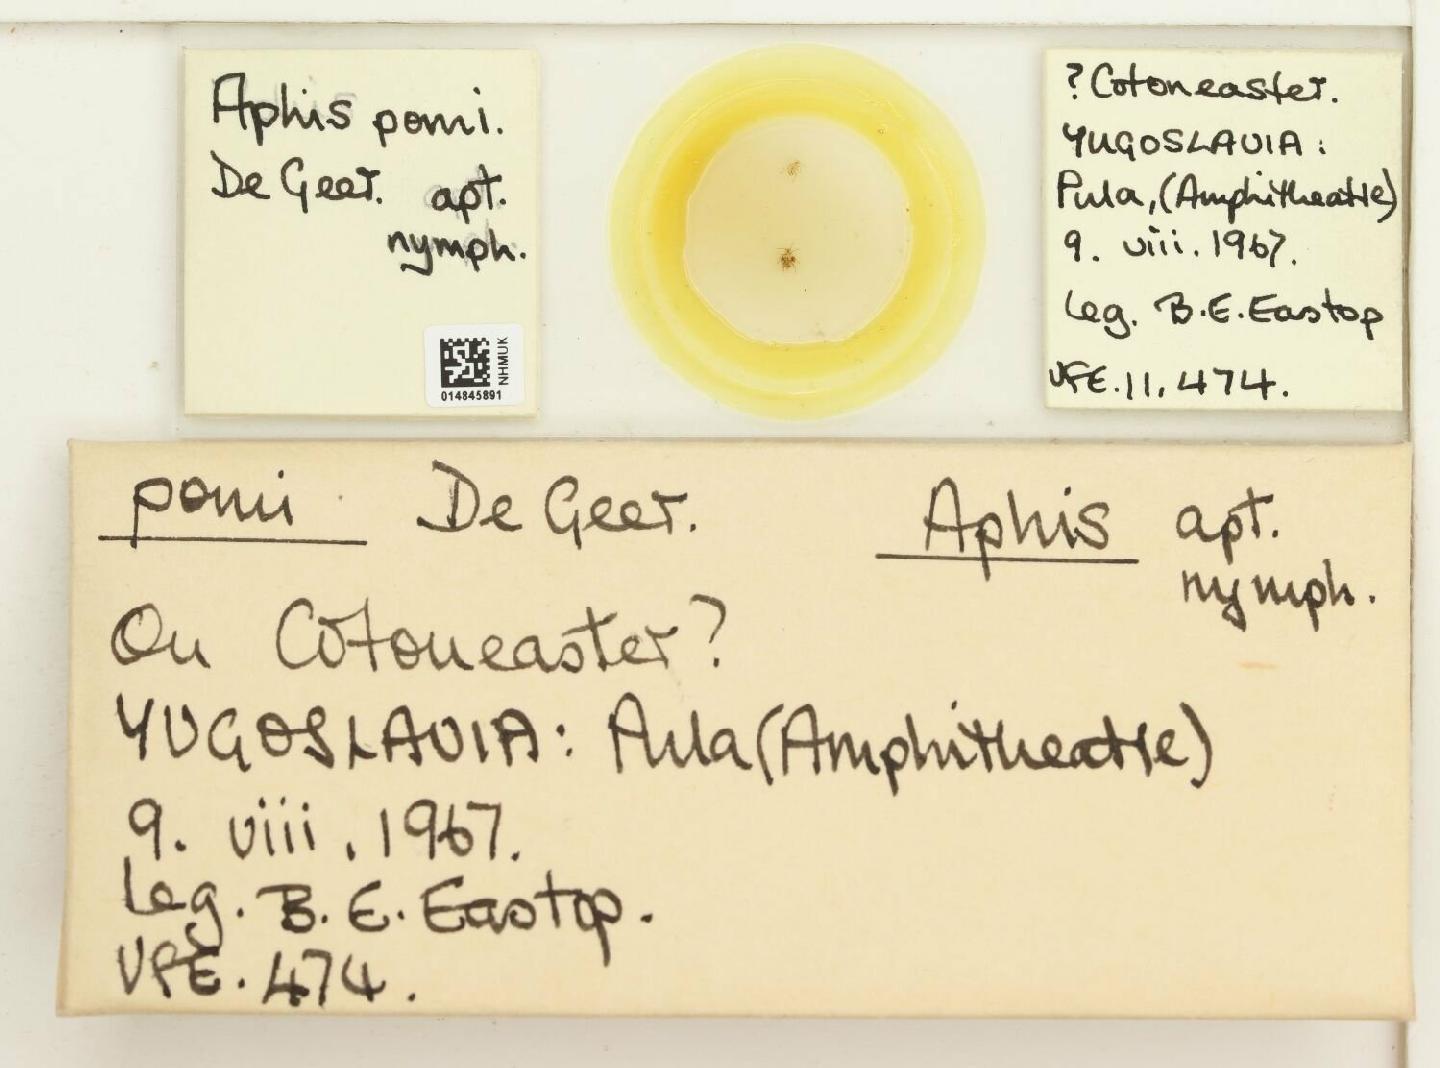 Aphis pomi.
De Geer. apt.
nymph.
NHMUK
014845891
? Cotoneaster.
YUGOSLAVIA:
Pula, (Amphitheatre)
9. viii. 1967.
Leg. B.E. Eastop
VFE. 11, 474.
pomi De Geer. Aphis apt.
nymph.
On Cotoneaster?
YUGOSLAVIA: Pula (Amphitheatre)
9. viii. 1967.
Leg. B. E. Eastop.
VFE. 474.